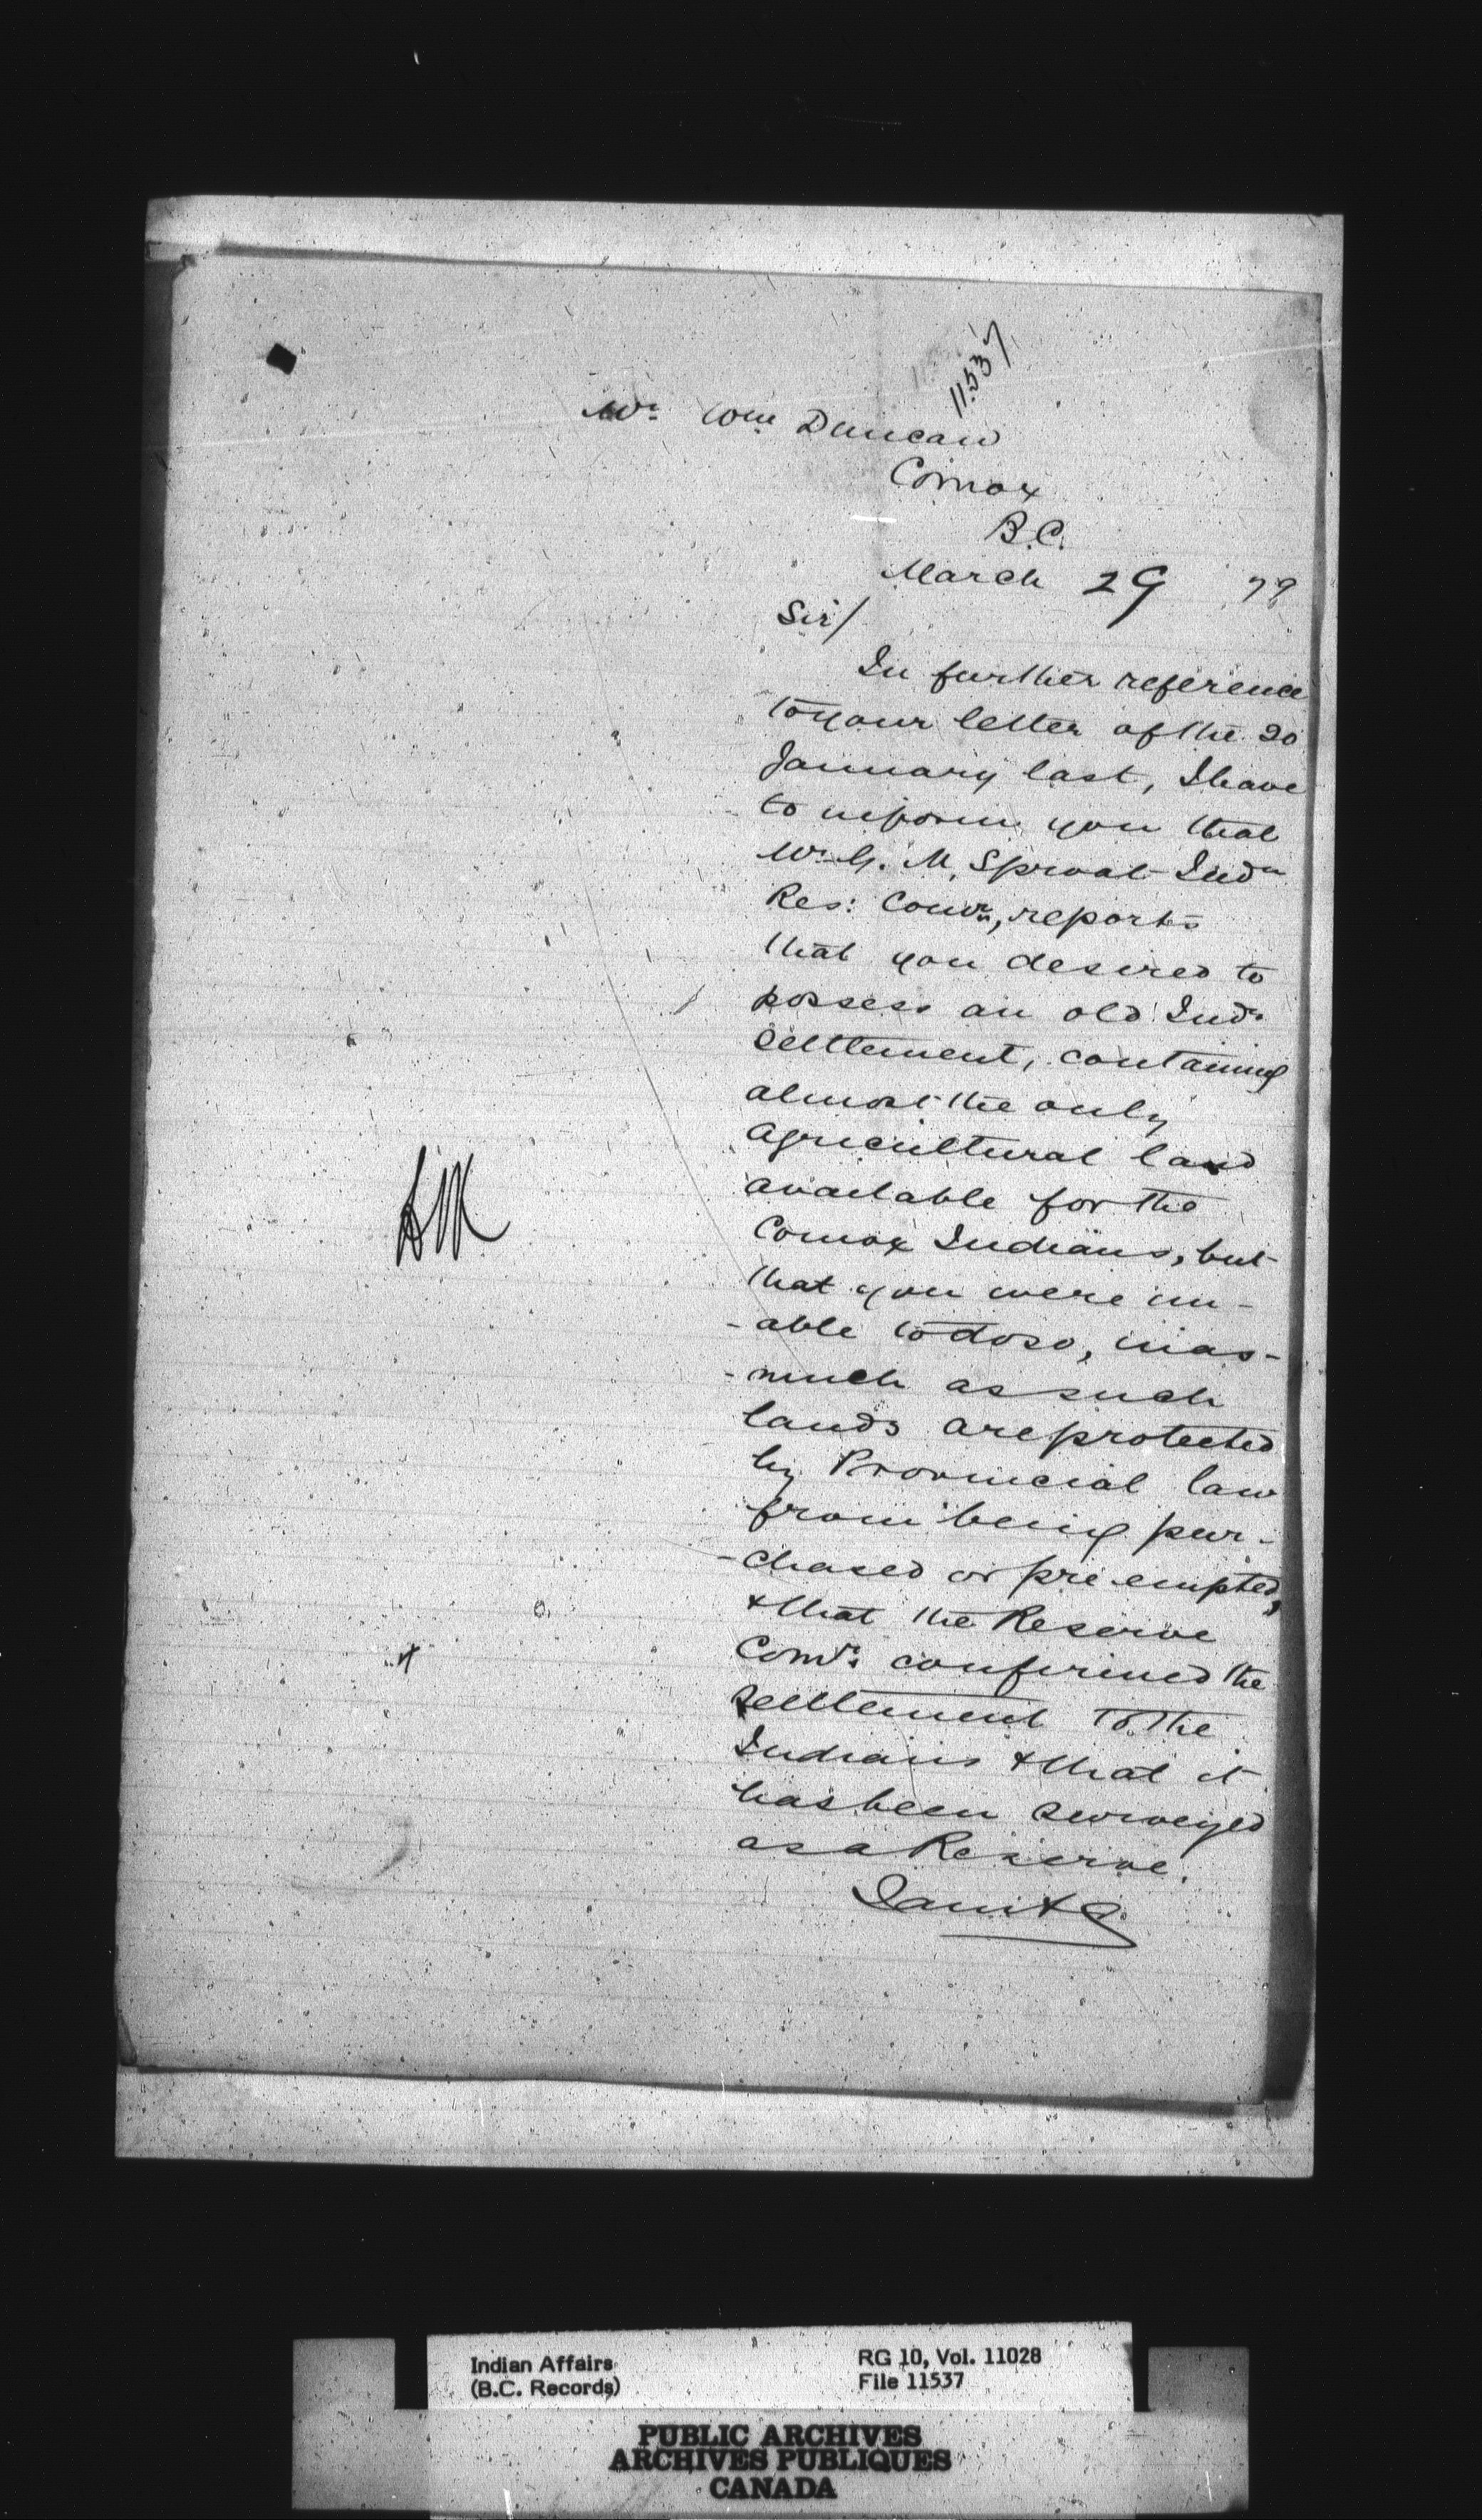 11537
Mr. Wm Duncan
Comox
B.C.
March 29 79
Sir/
In further reference
to your letter of the 20
January last, I have
to inform you that
Mr G. M. Sproat Indn
Res: Comr, reports
that you desired to
possess an old Indn
Settlement, containing
almost the only
agricultural land
available for the
Comox Indians, but
that you were un-
-able to do so, inas-
-much as such
lands are protected
by Provincial law
from being pur-
-chased or pre-empted,
& that the Reserve
Comrs confirmed the
settlement to the
Indians & that it
has been surveyed
as a Reserve.
I am &c
Indian Affairs
(B.C. Records)
RG 10, Vol. 11028
File 11537
PUBLIC ARCHIVES
ARCHIVES PUBLIQUES
CANADA